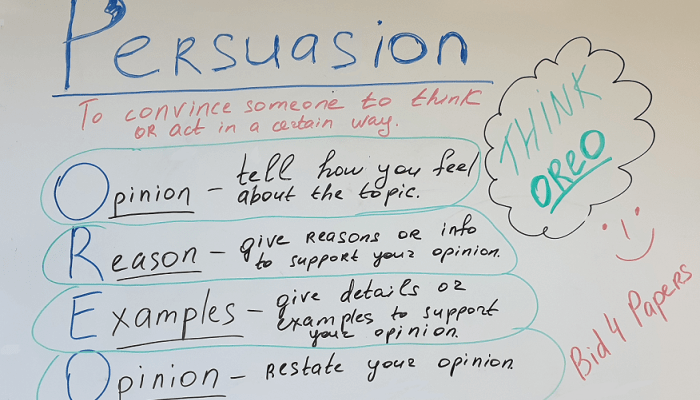 PERSUASION
To convince someone to think
OR act in a certain way.
Opinion – tell how you feel
about the topic.
Reason – give REASONS OR info
to support your opinion.
Examples – give details or
examples to support
your opinion.
Opinion – REstate your opinion.
THINK
OREO
Bid 4 Papers